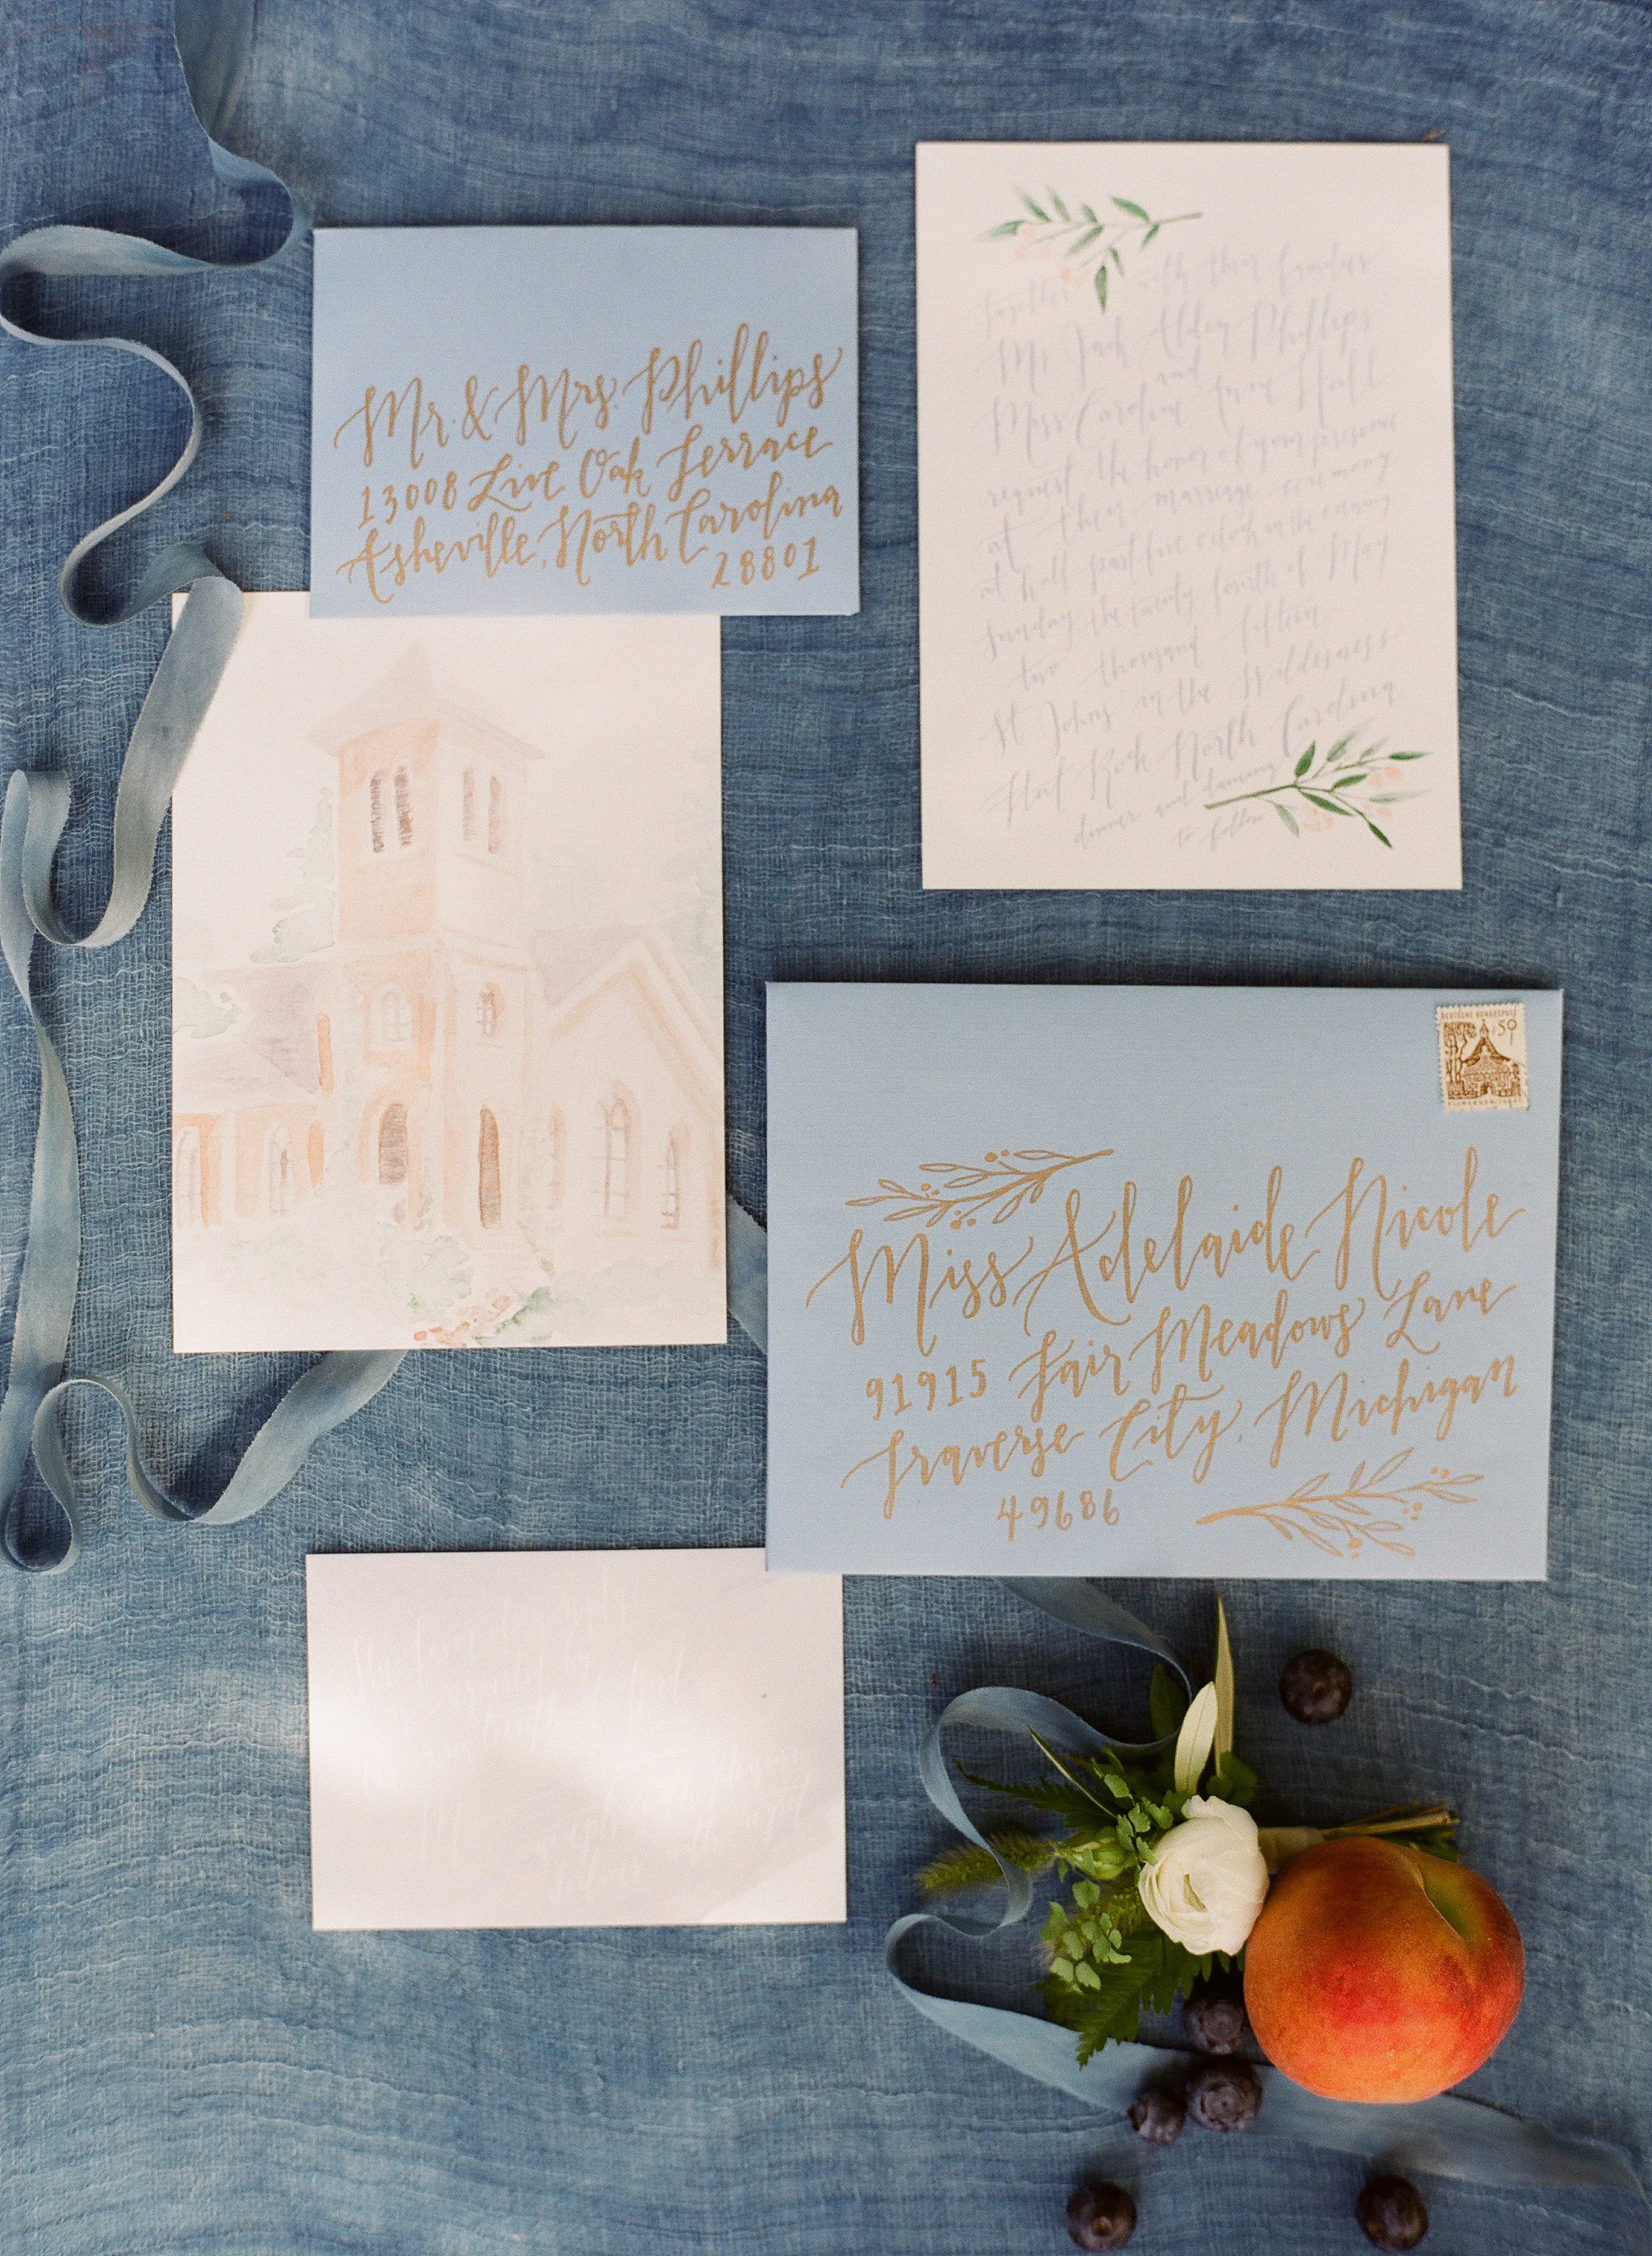 Mr. & Mrs. Phillips
13008 Live Oak Terrace
Asheville, North Carolina
28801
together with their families
Mr. Jack Alden Phillips
and
Miss Caroline Hall
request the honor of your presence
at their marriage ceremony
at half past five oclock in the evening
Sunday, the twenty fourth of May
two thousand fifteen
St Johns in the Wilderness
Flat Rock North Carolina
dinner and dancing
to follow
DEUTSCHE BUNDESPOST
50
Miss Adelaide Nicole
91915 Fair Meadows Lane
Traverse City, Michigan
49686